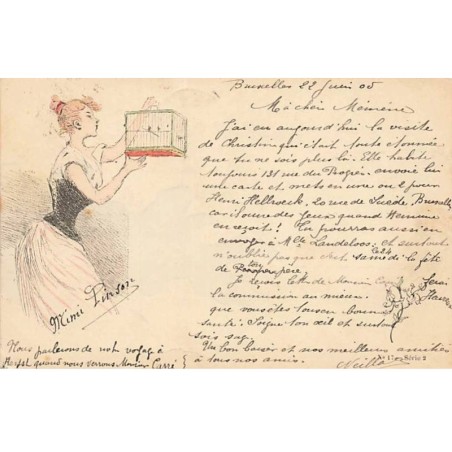 Bruxelles 22 Juin 05
Ma chère Mémère
J'ai eu aujourd'hui la visite
de Christine qui était toute étonnée
que tu ne sois plus là. Elle habite
toujours 131 rue du Progrès envoie lui
une carte et mets en une ou 2 pour
Henri Hellweck, 20 rue de Suède Bruxelles
car il ouvre des yeux quand Hermine
en reçoit! Tu pourras aussi en
envoyer à Mlle Landeloos; et surtout
n'oublie pas que c'est samedi le 24 la fête
de
Je reçois lettre de Monsieur
la commission au mieux.
que vous êtes tous en bonne
santé. Soigne ton œil et surtout
sois sage.
Un bon baiser et nos meilleures amitiés
à tous nos amis.
Mimi Pinson
Nous parlerons de notre voyage à
quand nous verrons Monsieur Carré